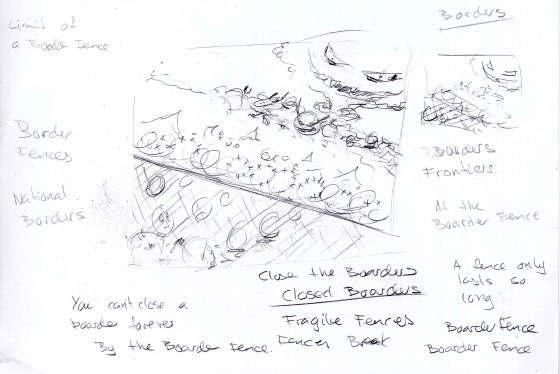 Limit of
a Boarder Fence
Borders
Border
Fences
National
Borders
Boarders
Frontiers
At the
Boarder Fence
Close the Boarders
Closed Boarders
Fragile Fences
Fences Break
A fence only
lasts so
long
Boarder Fence
Boarder Fence
You cant close a
boarder forever
By the Boarder Fence.